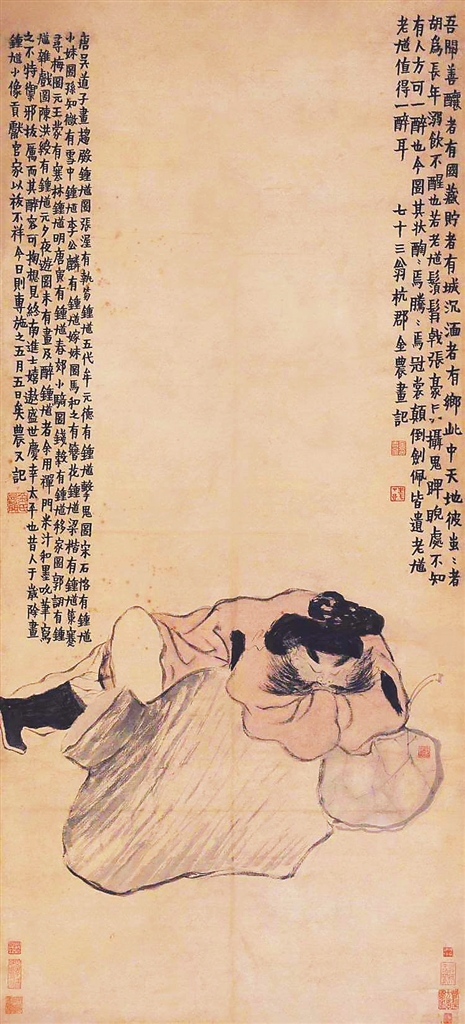 吾聞善釀者有國藏貯者有城沉湎者有鄉此中天地彼蚩〻者
胡為長年溺飲不醒也若老馗鬚髯戟張豪〻攝鬼睥睨處不知
有人方可一醉也今圖其狀酶〻焉騰〻焉冠裳顛倒劍佩皆遺老馗
老馗值得一醉耳 七十三翁杭郡金農畫記
唐吳道子畫趨殿鍾馗圖張渥有執笏鍾馗五代牟元德有鍾馗擊鬼圖宋石恪有鍾馗
小妹圖孫知微有雪中鍾馗李公麟有鍾馗嫁妹圖馬和之有簪花鍾馗梁楷有鍾馗策蹇
尋梅圖元王蒙有寒林鍾馗明唐寅有鍾馗春郊小騎圖錢榖有鍾馗移家圖郭詡有鍾
馗雜戲圖陳洪綬有鍾馗元夕夜遊圖未有畫及醉鍾馗者余用禪門米汁和墨吮筆寫
之不特禦邪拔厲而其醉容可掬想見終南進士嬉遨盛世慶幸太平也昔人于歲除畫
鍾馗小像貢獻官家以祓不祥今日則專施之五月五日矣農又記